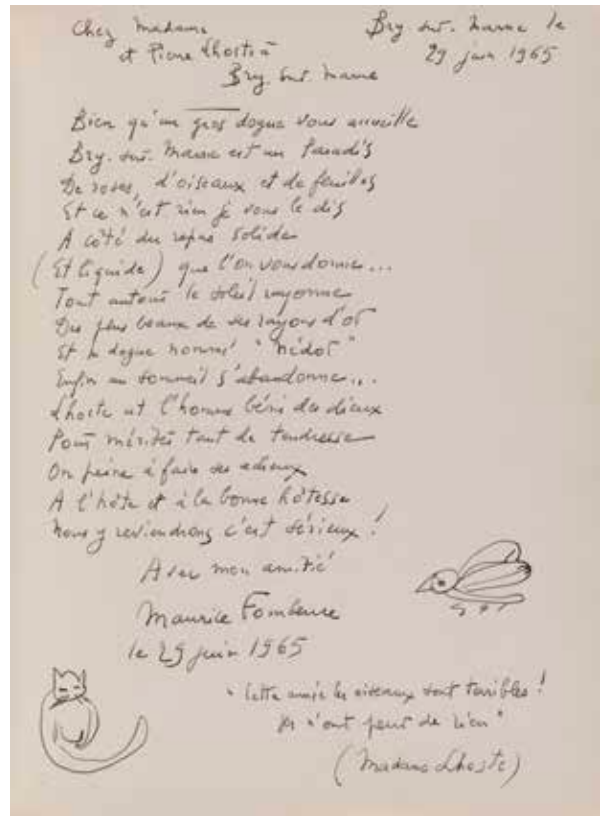 Chez Madame
et Pierre Lhoste à
Bry sur Marne
Bry sur Marne le
29 juin 1965
Bien qu'un gros dogue vous accueille
Bry. sur. Marne est un Paradis
De roses, d'oiseaux et de feuilles
Et ce n'est rien je vous le dis
A côté du repas solide
(Et liquide) que l'on vous donne...
Tout autour le soleil rayonne
Des plus beaux de ses rayons d'or
Et le dogue nommé "Médor"
Enfin au sommeil s'abandonne...
Lhoste est l'homme béni des dieux
Pour mériter tant de tendresse
On peine à faire ses adieux
A l'hôte et à la bonne hôtesse
Nous y reviendrons c'est sérieux !
Avec mon amitié
Maurice Fombeure
le 29 juin 1965
" Cette année les oiseaux sont terribles !
Ils n'ont peur de rien "
(Madame Lhoste)